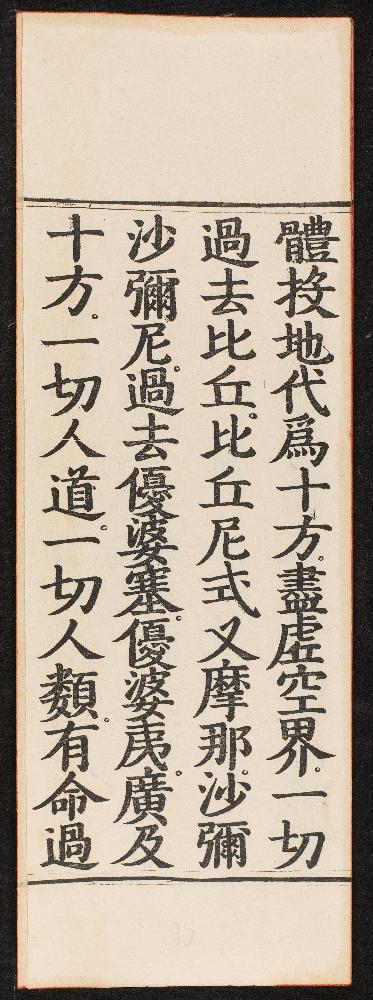 體投地代爲十方。盡虛空界。一切
過去比丘。比丘尼式叉摩那。沙彌
沙彌尼。過去優婆塞。優婆夷。廣及
十方。一切人道。一切人類。有命過